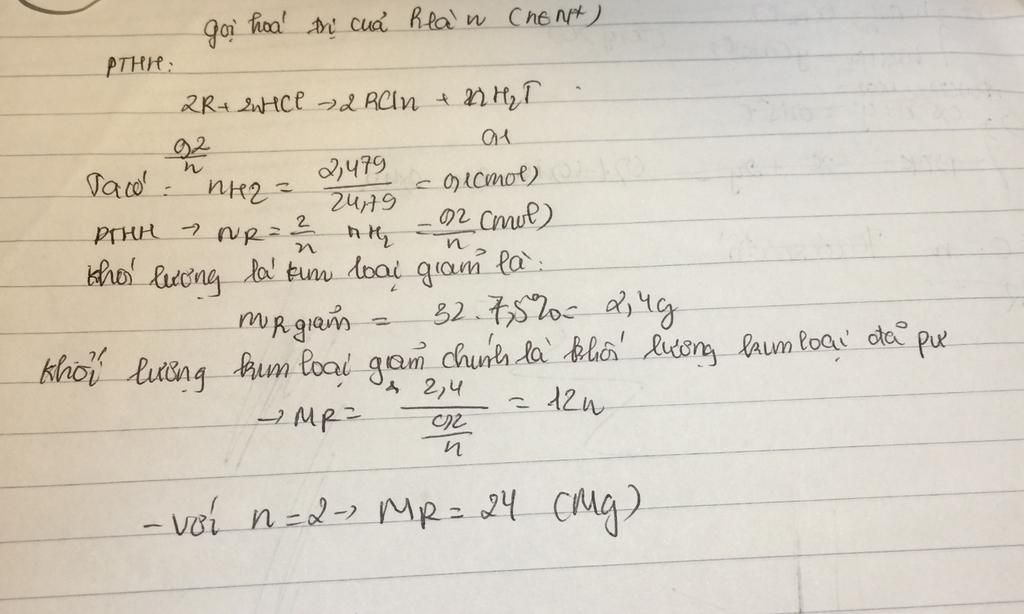 gọi hoá trị của R là n (n∈N*)
PTHH:
2R + 2nHCl → 2RCln + nH2↑
0,2/n 0,1
Ta có: nH2 = 2,479/24,79 = 0,1 (mol)
PTHH → nR = 2/n nH2 = 0,2/n (mol)
khối lượng lá kim loại giảm là:
mR giảm = 32.7,5% = 2,4g
khối lượng kim loại giảm chính là khối lượng kim loại đã pư
→ MR = 2,4/(0,2/n) = 12n
- với n = 2 → MR = 24 (Mg)